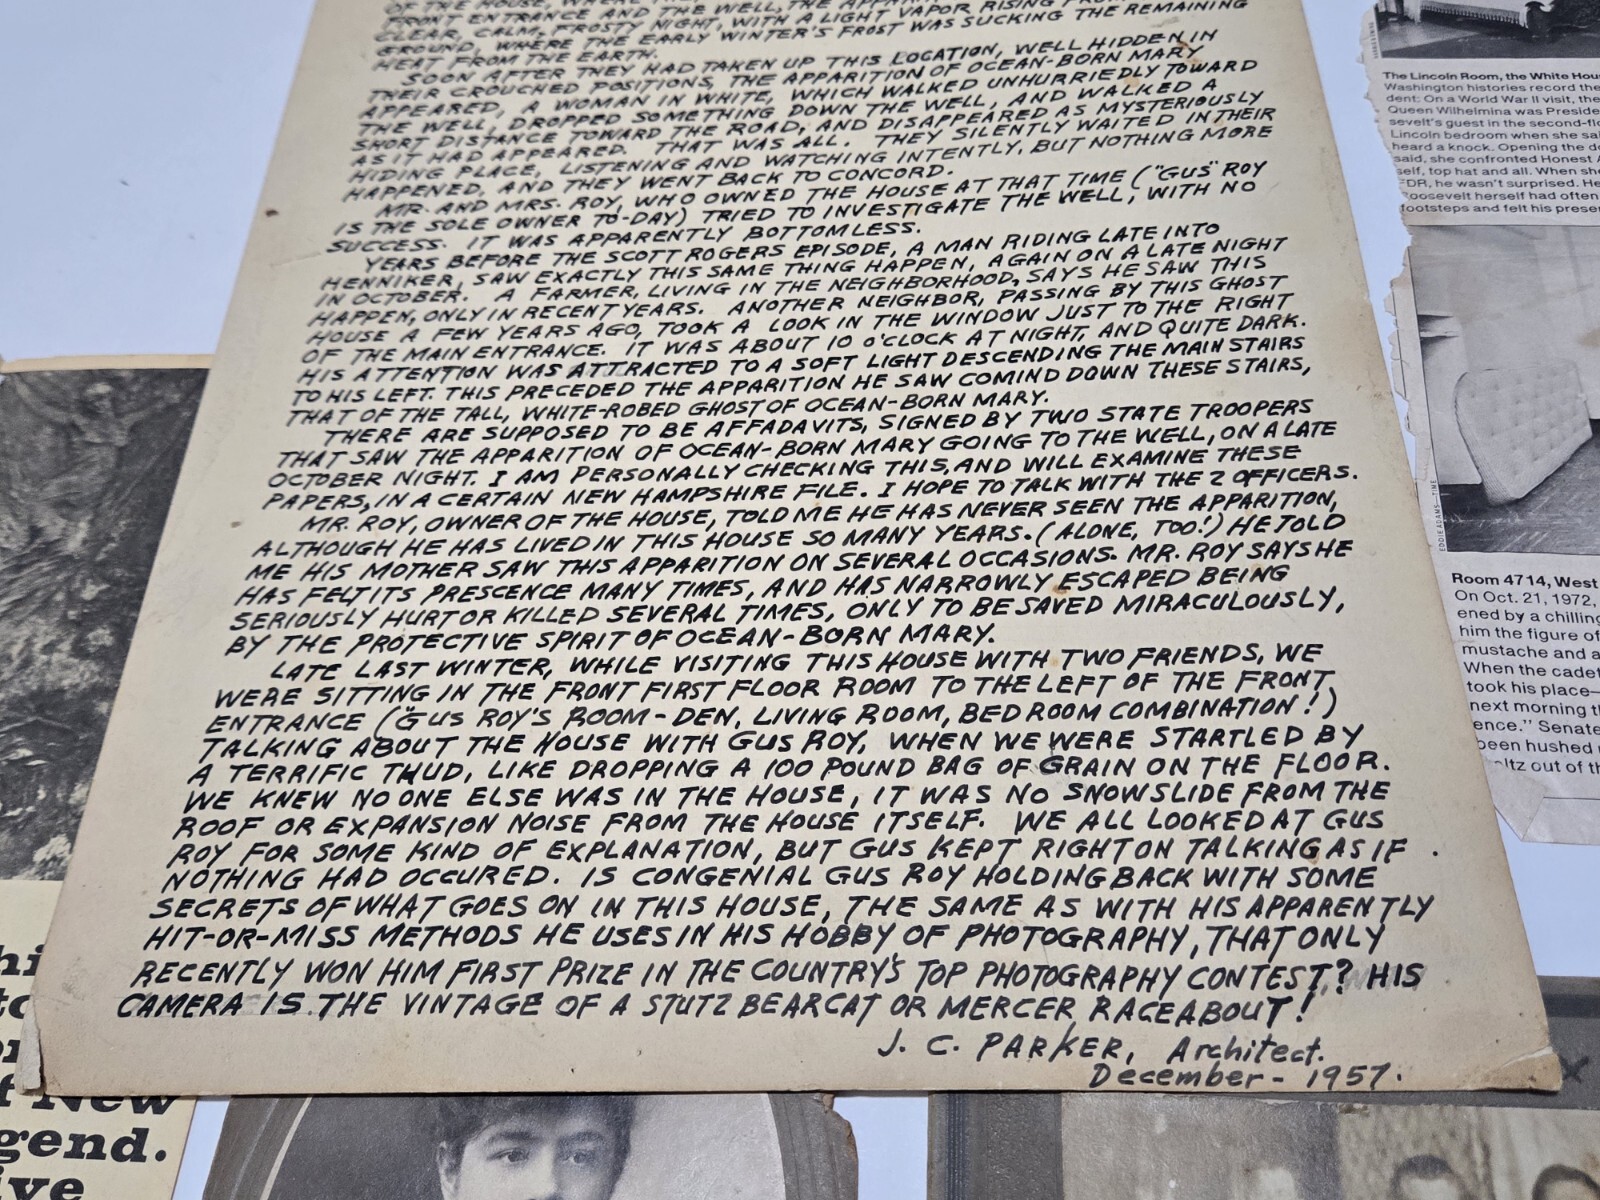 OF THE HOUSE, WHERE
FRONT ENTRANCE AND THE WELL, THE
CLEAR, CALM, FROSTY NIGHT, WITH A LIGHT VAPOR RISING FROM
GROUND, WHERE THE EARLY WINTER'S FROST WAS SUCKING THE REMAINING
HEAT FROM THE EARTH.
SOON AFTER THEY HAD TAKEN UP THIS LOCATION, WELL HIDDEN IN
THEIR CROUCHED POSITIONS, THE APPARITION OF OCEAN-BORN MARY
APPEARED, A WOMAN IN WHITE, WHICH WALKED UNHURRIEDLY TOWARD
THE WELL, DROPPED SOMETHING DOWN THE WELL, AND WALKED A
SHORT DISTANCE TOWARD THE ROAD, AND DISAPPEARED AS MYSTERIOUSLY
AS IT HAD APPEARED. THAT WAS ALL. THEY SILENTLY WAITED IN THEIR
HIDING PLACE, LISTENING AND WATCHING INTENTLY, BUT NOTHING MORE
HAPPENED, AND THEY WENT BACK TO CONCORD.
MR. AND MRS. ROY, WHO OWNED THE HOUSE AT THAT TIME ("GUS" ROY
IS THE SOLE OWNER TO-DAY) TRIED TO INVESTIGATE THE WELL, WITH NO
SUCCESS. IT WAS APPARENTLY BOTTOMLESS.
YEARS BEFORE THE SCOTT ROGERS EPISODE, A MAN RIDING LATE INTO
HENNIKER, SAW EXACTLY THIS SAME THING HAPPEN, AGAIN ON A LATE NIGHT
IN OCTOBER. A FARMER, LIVING IN THE NEIGHBORHOOD, SAYS HE SAW THIS
HAPPEN, ONLY IN RECENT YEARS. ANOTHER NEIGHBOR, PASSING BY THIS GHOST
HOUSE A FEW YEARS AGO, TOOK A LOOK IN THE WINDOW JUST TO THE RIGHT
OF THE MAIN ENTRANCE. IT WAS ABOUT 10 O'CLOCK AT NIGHT, AND QUITE DARK.
HIS ATTENTION WAS ATTRACTED TO A SOFT LIGHT DESCENDING THE MAIN STAIRS
TO HIS LEFT. THIS PRECEDED THE APPARITION HE SAW COMIND DOWN THESE STAIRS,
THAT OF THE TALL, WHITE-ROBED GHOST OF OCEAN-BORN MARY.
THERE ARE SUPPOSED TO BE AFFADAVITS, SIGNED BY TWO STATE TROOPERS
THAT SAW THE APPARITION OF OCEAN-BORN MARY GOING TO THE WELL, ON A LATE
OCTOBER NIGHT. I AM PERSONALLY CHECKING THIS, AND WILL EXAMINE THESE
PAPERS, IN A CERTAIN NEW HAMPSHIRE FILE. I HOPE TO TALK WITH THE 2 OFFICERS.
MR. ROY, OWNER OF THE HOUSE, TOLD ME HE HAS NEVER SEEN THE APPARITION,
ALTHOUGH HE HAS LIVED IN THIS HOUSE SO MANY YEARS. (ALONE, TOO!) HE TOLD
ME HIS MOTHER SAW THIS APPARITION ON SEVERAL OCCASIONS. MR. ROY SAYS HE
HAS FELT ITS PRESCENCE MANY TIMES, AND HAS NARROWLY ESCAPED BEING
SERIOUSLY HURT OR KILLED SEVERAL TIMES, ONLY TO BE SAVED MIRACULOUSLY,
BY THE PROTECTIVE SPIRIT OF OCEAN-BORN MARY.
LATE LAST WINTER, WHILE VISITING THIS HOUSE WITH TWO FRIENDS, WE
WERE SITTING IN THE FRONT FIRST FLOOR ROOM TO THE LEFT OF THE FRONT
ENTRANCE ("GUS ROY'S ROOM-DEN, LIVING ROOM, BEDROOM COMBINATION!)
TALKING ABOUT THE HOUSE WITH GUS ROY, WHEN WE WERE STARTLED BY
A TERRIFIC THUD, LIKE DROPPING A 100 POUND BAG OF GRAIN ON THE FLOOR.
WE KNEW NO ONE ELSE WAS IN THE HOUSE, IT WAS NO SNOWSLIDE FROM THE
ROOF OR EXPANSION NOISE FROM THE HOUSE ITSELF. WE ALL LOOKED AT GUS
ROY FOR SOME KIND OF EXPLANATION, BUT GUS KEPT RIGHT ON TALKING AS IF
NOTHING HAD OCCURED. IS CONGENIAL GUS ROY HOLDING BACK WITH SOME
SECRETS OF WHAT GOES ON IN THIS HOUSE, THE SAME AS WITH HIS APPARENTLY
HIT-OR-MISS METHODS HE USES IN HIS HOBBY OF PHOTOGRAPHY, THAT ONLY
RECENTLY WON HIM FIRST PRIZE IN THE COUNTRY'S TOP PHOTOGRAPHY CONTEST? HIS
CAMERA IS THE VINTAGE OF A STUTZ BEARCAT OR MERCER RACEABOUT!
J. C. PARKER, Architect.
December - 1957.
The Lincoln Room, the White Hou
Washington histories record the
dent: On a World War II visit, the
Queen Wilhelmina was Preside
sevelt's guest in the second-fl
Lincoln bedroom when she sa
heard a knock. Opening the d
said, she confronted Honest A
self, top hat and all. When she
FDR, he wasn't surprised. He
oosevelt herself had often
footsteps and felt his prese
EDDIE ADAMS—TIME
Room 4714, West
On Oct. 21, 1972,
ened by a chilling
him the figure of
mustache and a
When the cadet
took his place—
next morning th
ence." Senate
been hushed
ltz out of th
hi
to
or
f New
gend.
ive
x